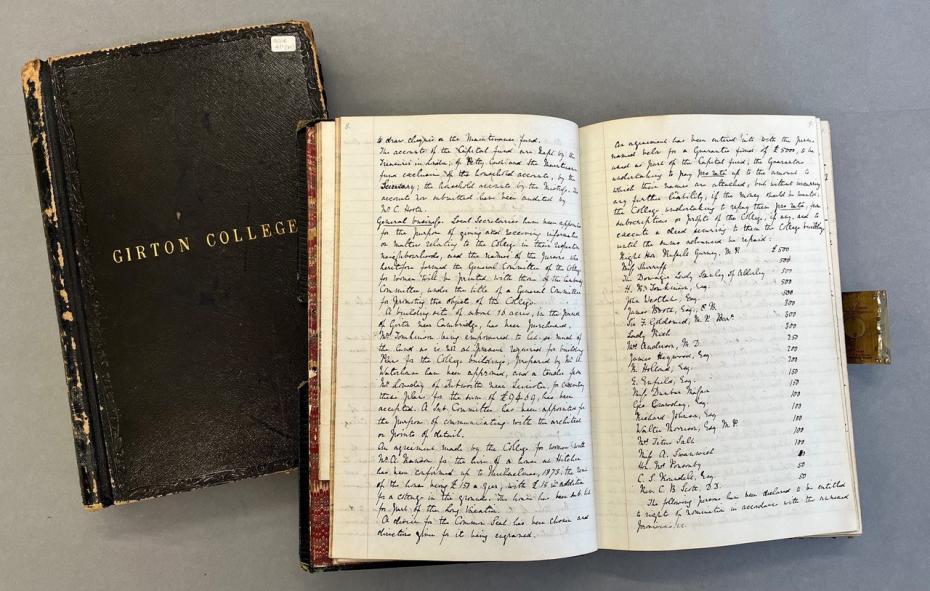 GIRTON COLLEGE
to draw cheques on the Maintenance fund.
The accounts of the Capital fund are kept by the
Treasurer in London; of Petty Cash and the Maintenance
fund exclusive of the household accounts, by the
Secretary; the household accounts by the Mistress. The
accounts now submitted have been audited by
Mr C. Hoare.
General business. Local Secretaries have been appointed
for the purpose of giving and receiving information
on matters relating to the College in their respective
neighbourhoods, and the names of the persons who
heretofore formed the General Committee of the College
for Women will be printed with them in the
Committee, under the title of a General Committee
for promoting the objects of the College.
A building site of about 16 acres, in the parish
of Girton near Cambridge, has been purchased,
Mr Tomkinson being empowered to let so much of
the land as is not at present required for building.
Plans for the College buildings, prepared by Mr A.
Waterhouse have been approved, and a tender from
Mr Loveday of Kibworth near Leicester, for executing
these plans for the sum of has been
accepted. A Sub-Committee has been appointed for
the purpose of communicating with the architect
on points of detail.
An agreement made by the College for Women with
Mr A. Ransom for the hire of a house at Hitchin
has been confirmed up to Michaelmas, 1873; the rent
of the house being £ 150 a year, with £ 15 in addition
for a cottage in the grounds. The house has been sub-let
for part of the Long Vacation.
A device for the Common Seal has been chosen and
directions given for its being engraved.
An agreement has been entered into with the persons
named below for a Guarantee fund of £ 5000, to be
used as part of the Capital fund; the Guarantors
undertaking to pay pro rata up to the amount to
which their names are attached, but without incurring
any further liability, if the money should be wanted;
the College undertaking to repay them pro rata, from
subscriptions or profits of the College, if any, and to
execute a deed securing to them the College buildings
until the sums advanced be repaid:
Right Hon. Russell Gurney, M.P. £ 500
Miss Shirreff 500
The Dowager Lady Stanley of Alderley 500
H. R. Tomkinson, Esq. 500
John Westlake, Esq. 500
James Booth, Esq., C.B. 300
Sir F. Goldsmid, M.P. Bart. 300
Lady Rich 300
Mrs Anderson, M.D. 250
James Heywood, Esq. 200
R. Holland, Esq. 200
E. Enfield, Esq. 150
Miss Dunbar Nasmith 150
Geo. Crawshay, Esq. 100
Richard Johnson, Esq. 100
Walter Morrison, Esq. M.P. 100
Mr Titus Salt 100
Miss A. Swanwick 100
Hon. Mrs Ponsonby
C. S. Roundell, Esq. 50
Rev. C. B. Scott, D.D. 50
The following persons have been declared to be entitled
to rights of nomination in accordance with the